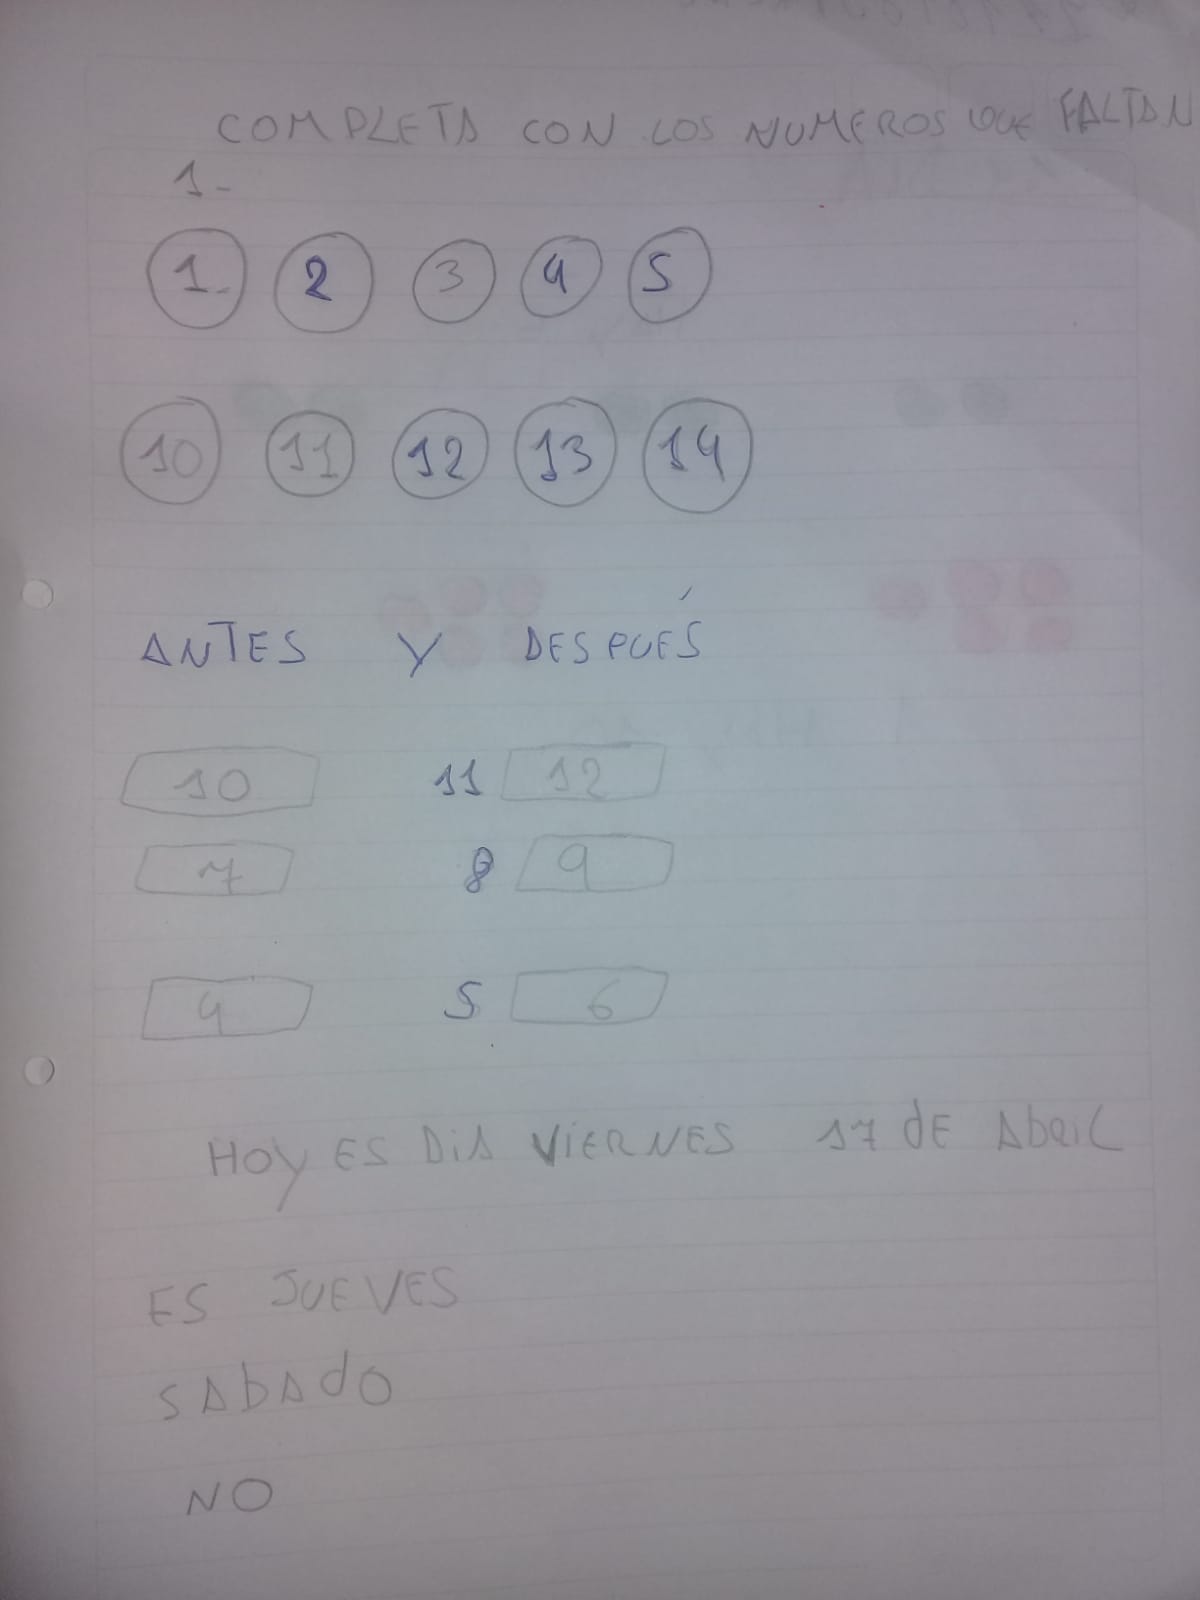 COMPLETA CON LOS NUMEROS QUE FALTAN
1-
1 2 3 4 5
10 11 12 13 14
ANTES Y DESPUÉS
10 11 12
7 8 9
4 5 6
HOY ES DIA VIERNES 17 dE AbRIL
ES JUEVES
SAbAdO
NO